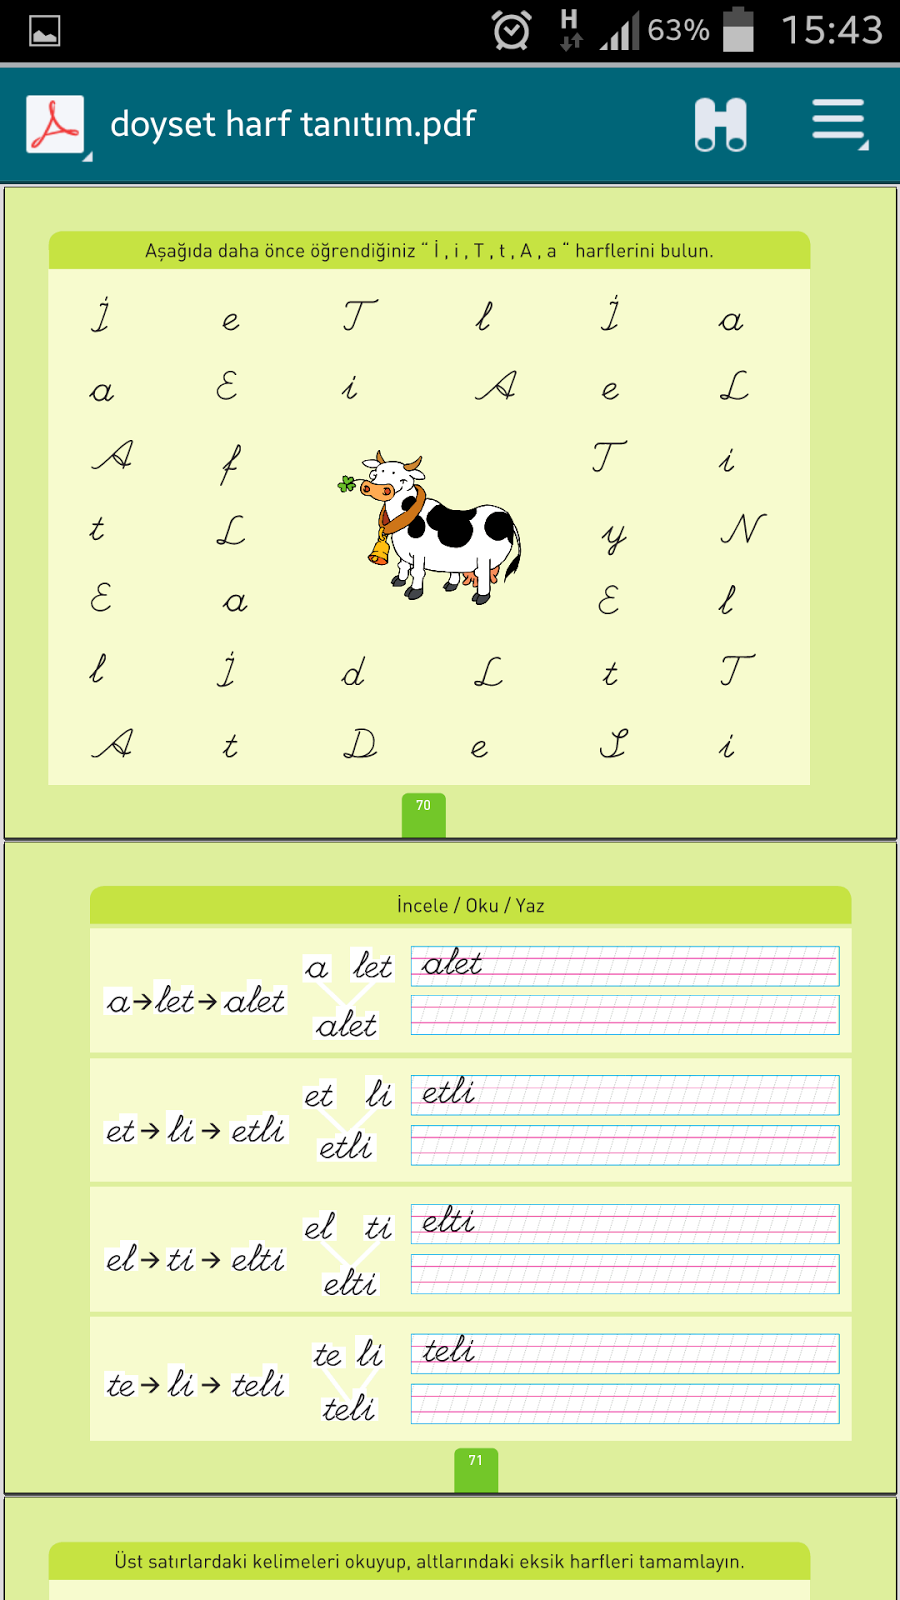 H 63% 15:43
doyset harf tanıtım.pdf
Aşağıda daha önce öğrendiğiniz “ İ , i , T , t , A , a “ harflerini bulun.
İ e T l İ a
a E i A e L
A f T i
t L y N
E a E l
l İ d L t T
A t D e S i
70
İncele / Oku / Yaz
a let alet
a→let→alet
alet
et li etli
et→li→etli
etli
el ti elti
el→ti→elti
elti
te li teli
te→li→teli
teli
71
Üst satırlardaki kelimeleri okuyup, altlarındaki eksik harfleri tamamlayın.